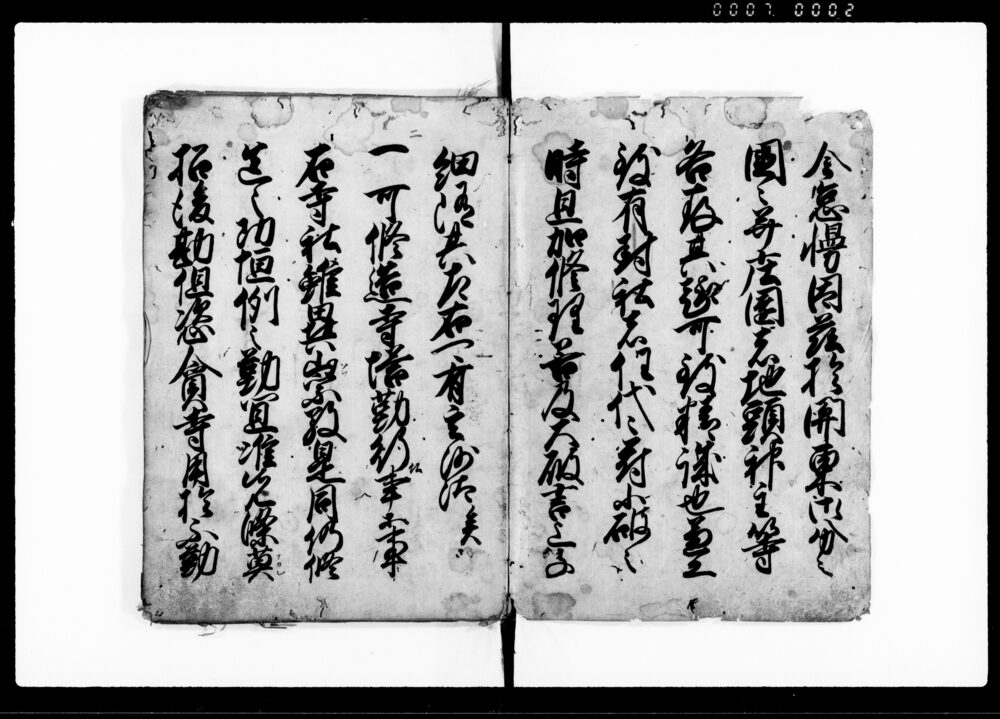 0007 0002
令怠慢因茲於關東御分之
國々并庄園者地頭神主等
各存其趣可致精誠也兼又
致有封社者任代々苻小破之
時且加修理若及大破言上子
細随其左右可有其沙汰矣
一可修造寺塔勤行事等事
右寺社雖異崇敬是同仍修
造之功恒例之勤宜准先條莫
招後勘但恣貪寺用於不勤